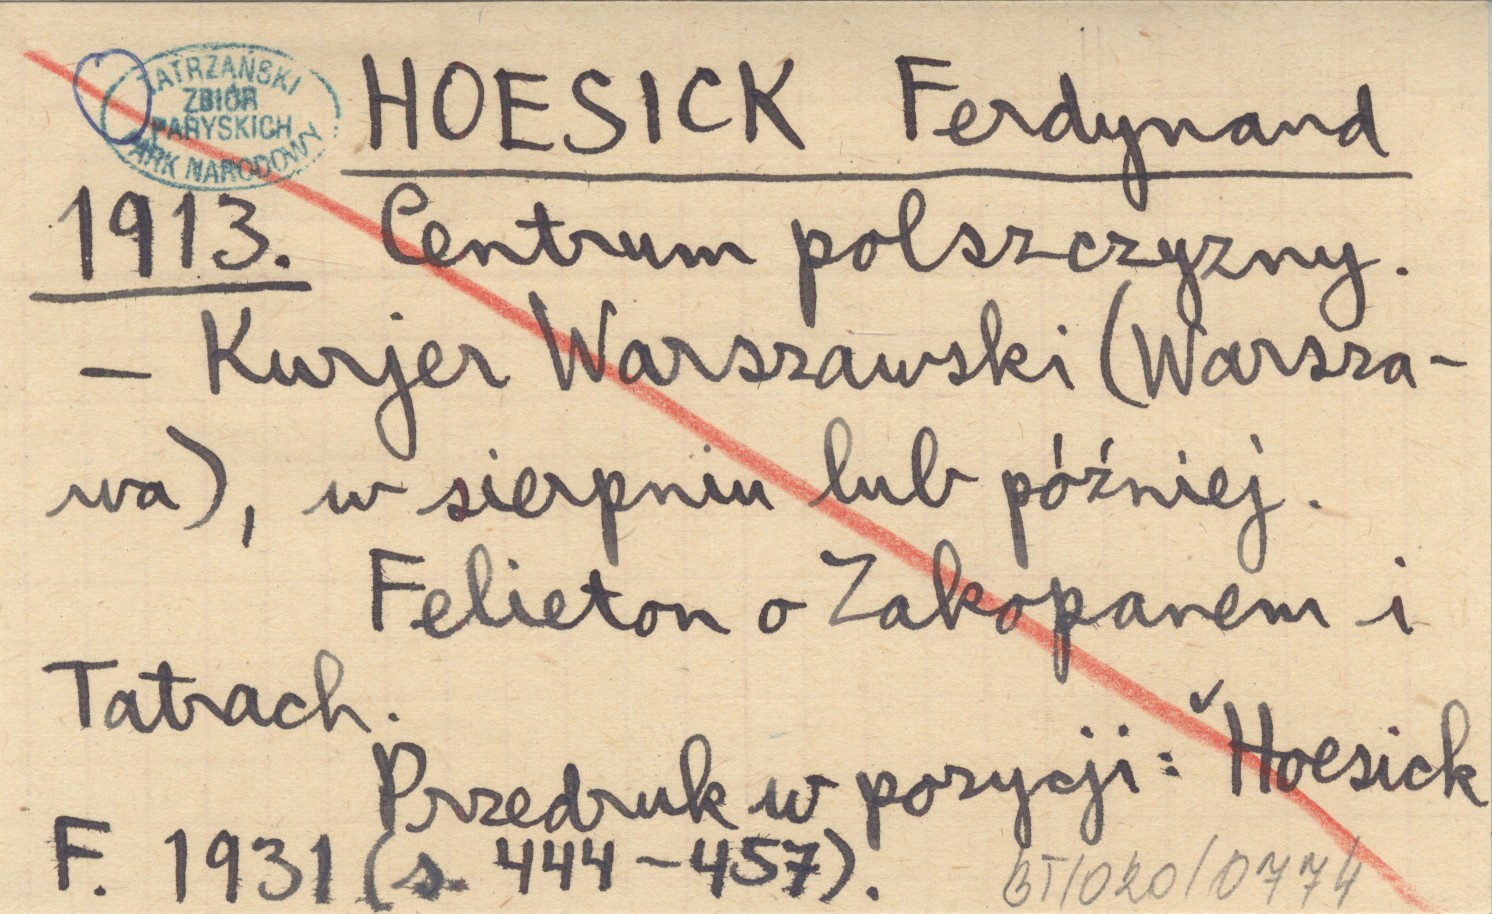 TATRZAŃSKI
ZBIÓR
PARYSKICH
PARK NARODOWY
HOESICK Ferdynand
1913. Centrum polszczyzny.
– Kurjer Warszawski (Warsza-
wa), w sierpniu lub później.
Felieton o Zakopanem i
Tatrach.
Przedruk w pozycji: Hoesick
F. 1931 (s. 444–457).
BT/020/0774